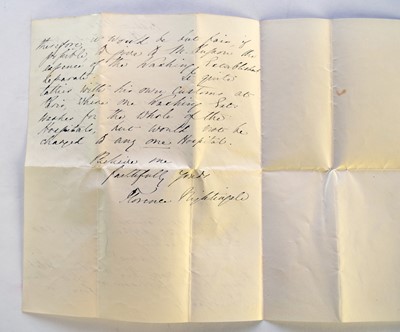 therefore, it would be but fair, if
possible, to give of M. the
expense of the Washing Establishment
separate. It quite
tallies with his own Customs, at
Paris, where one washing
washes for the whole of the
Hospitals, but would not be
charged to any one Hospital.
Believe me
faithfully yours
Florence Nightingale